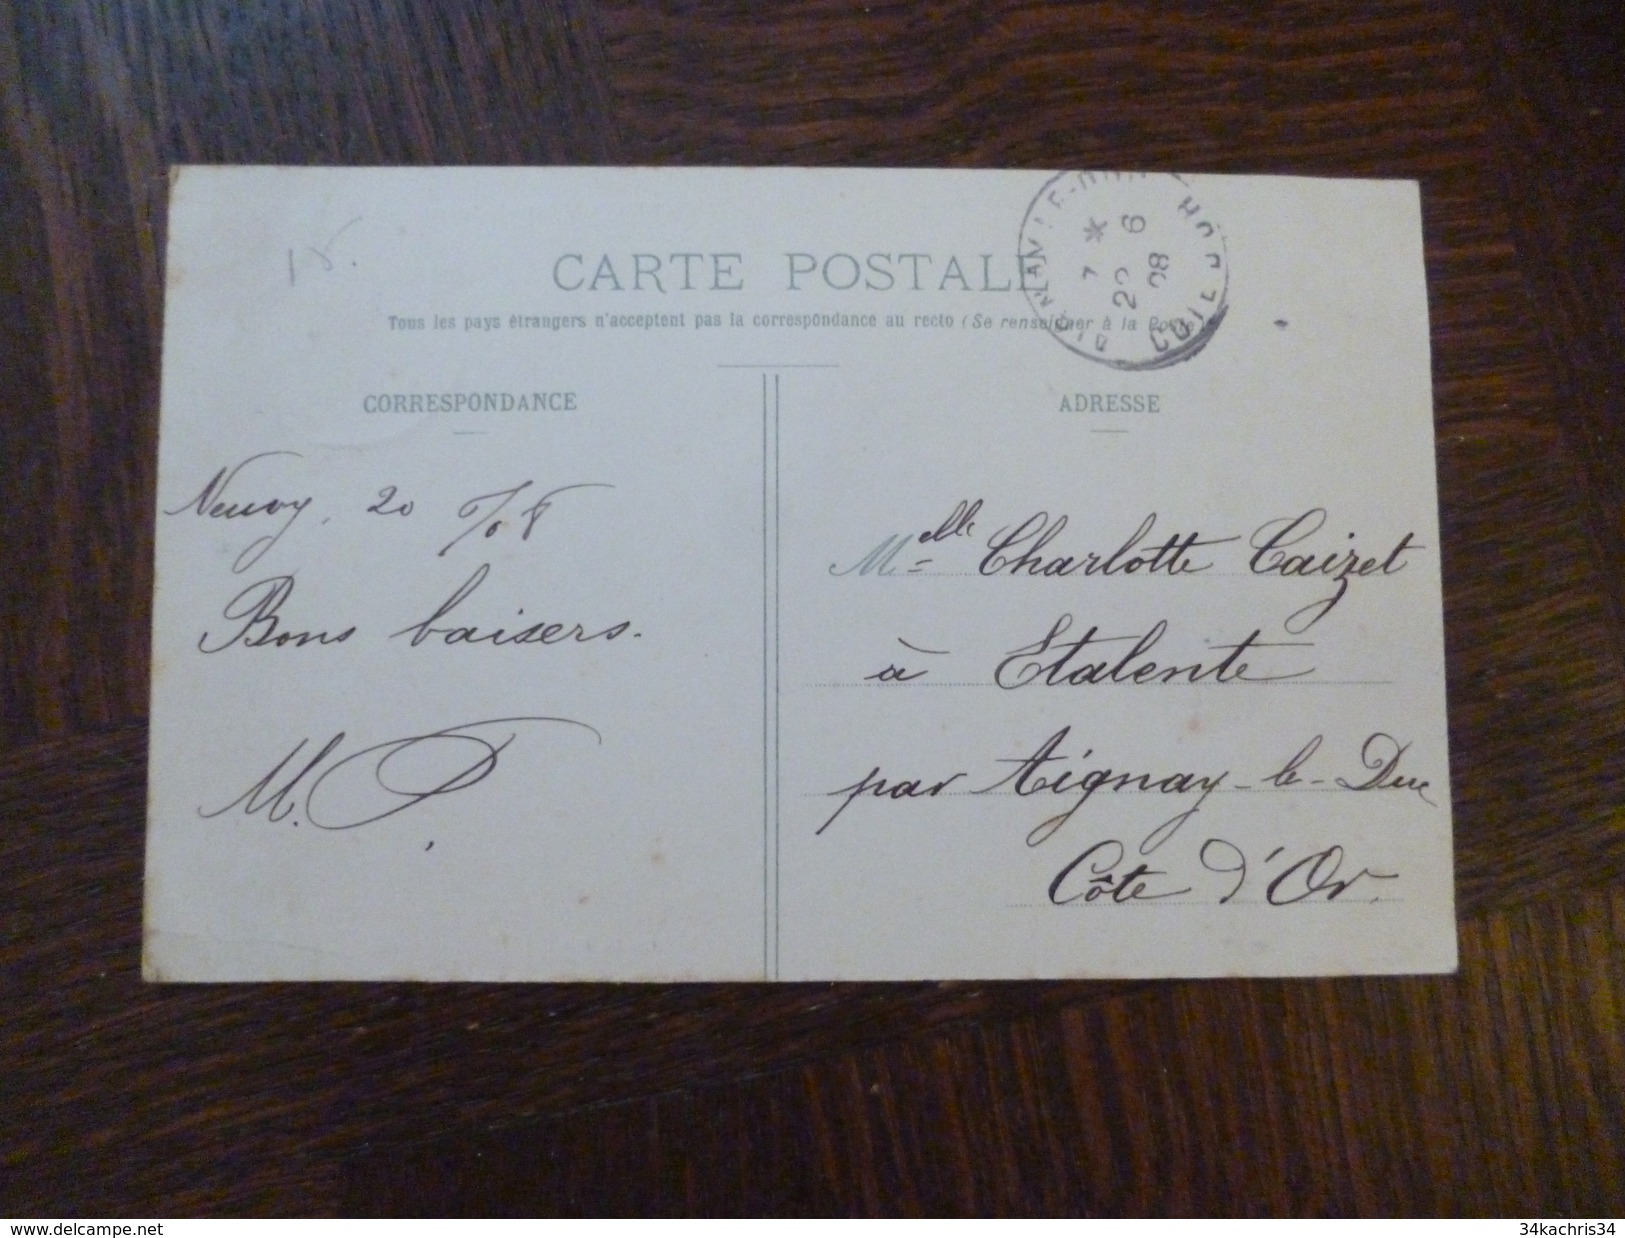 15.
CARTE POSTALE
Tous les pays étrangers n'acceptent pas la correspondance au recto (Se renseigner à la Poste)
CORRESPONDANCE
Neuvy, 20
Bons baisers.
M. P.
ADRESSE
Melle Charlotte Caizet
à Etalente
par Aignay-le-Duc
Côte d'Or.
7 *
22 6
08
www.delcampe.net
34kachris34